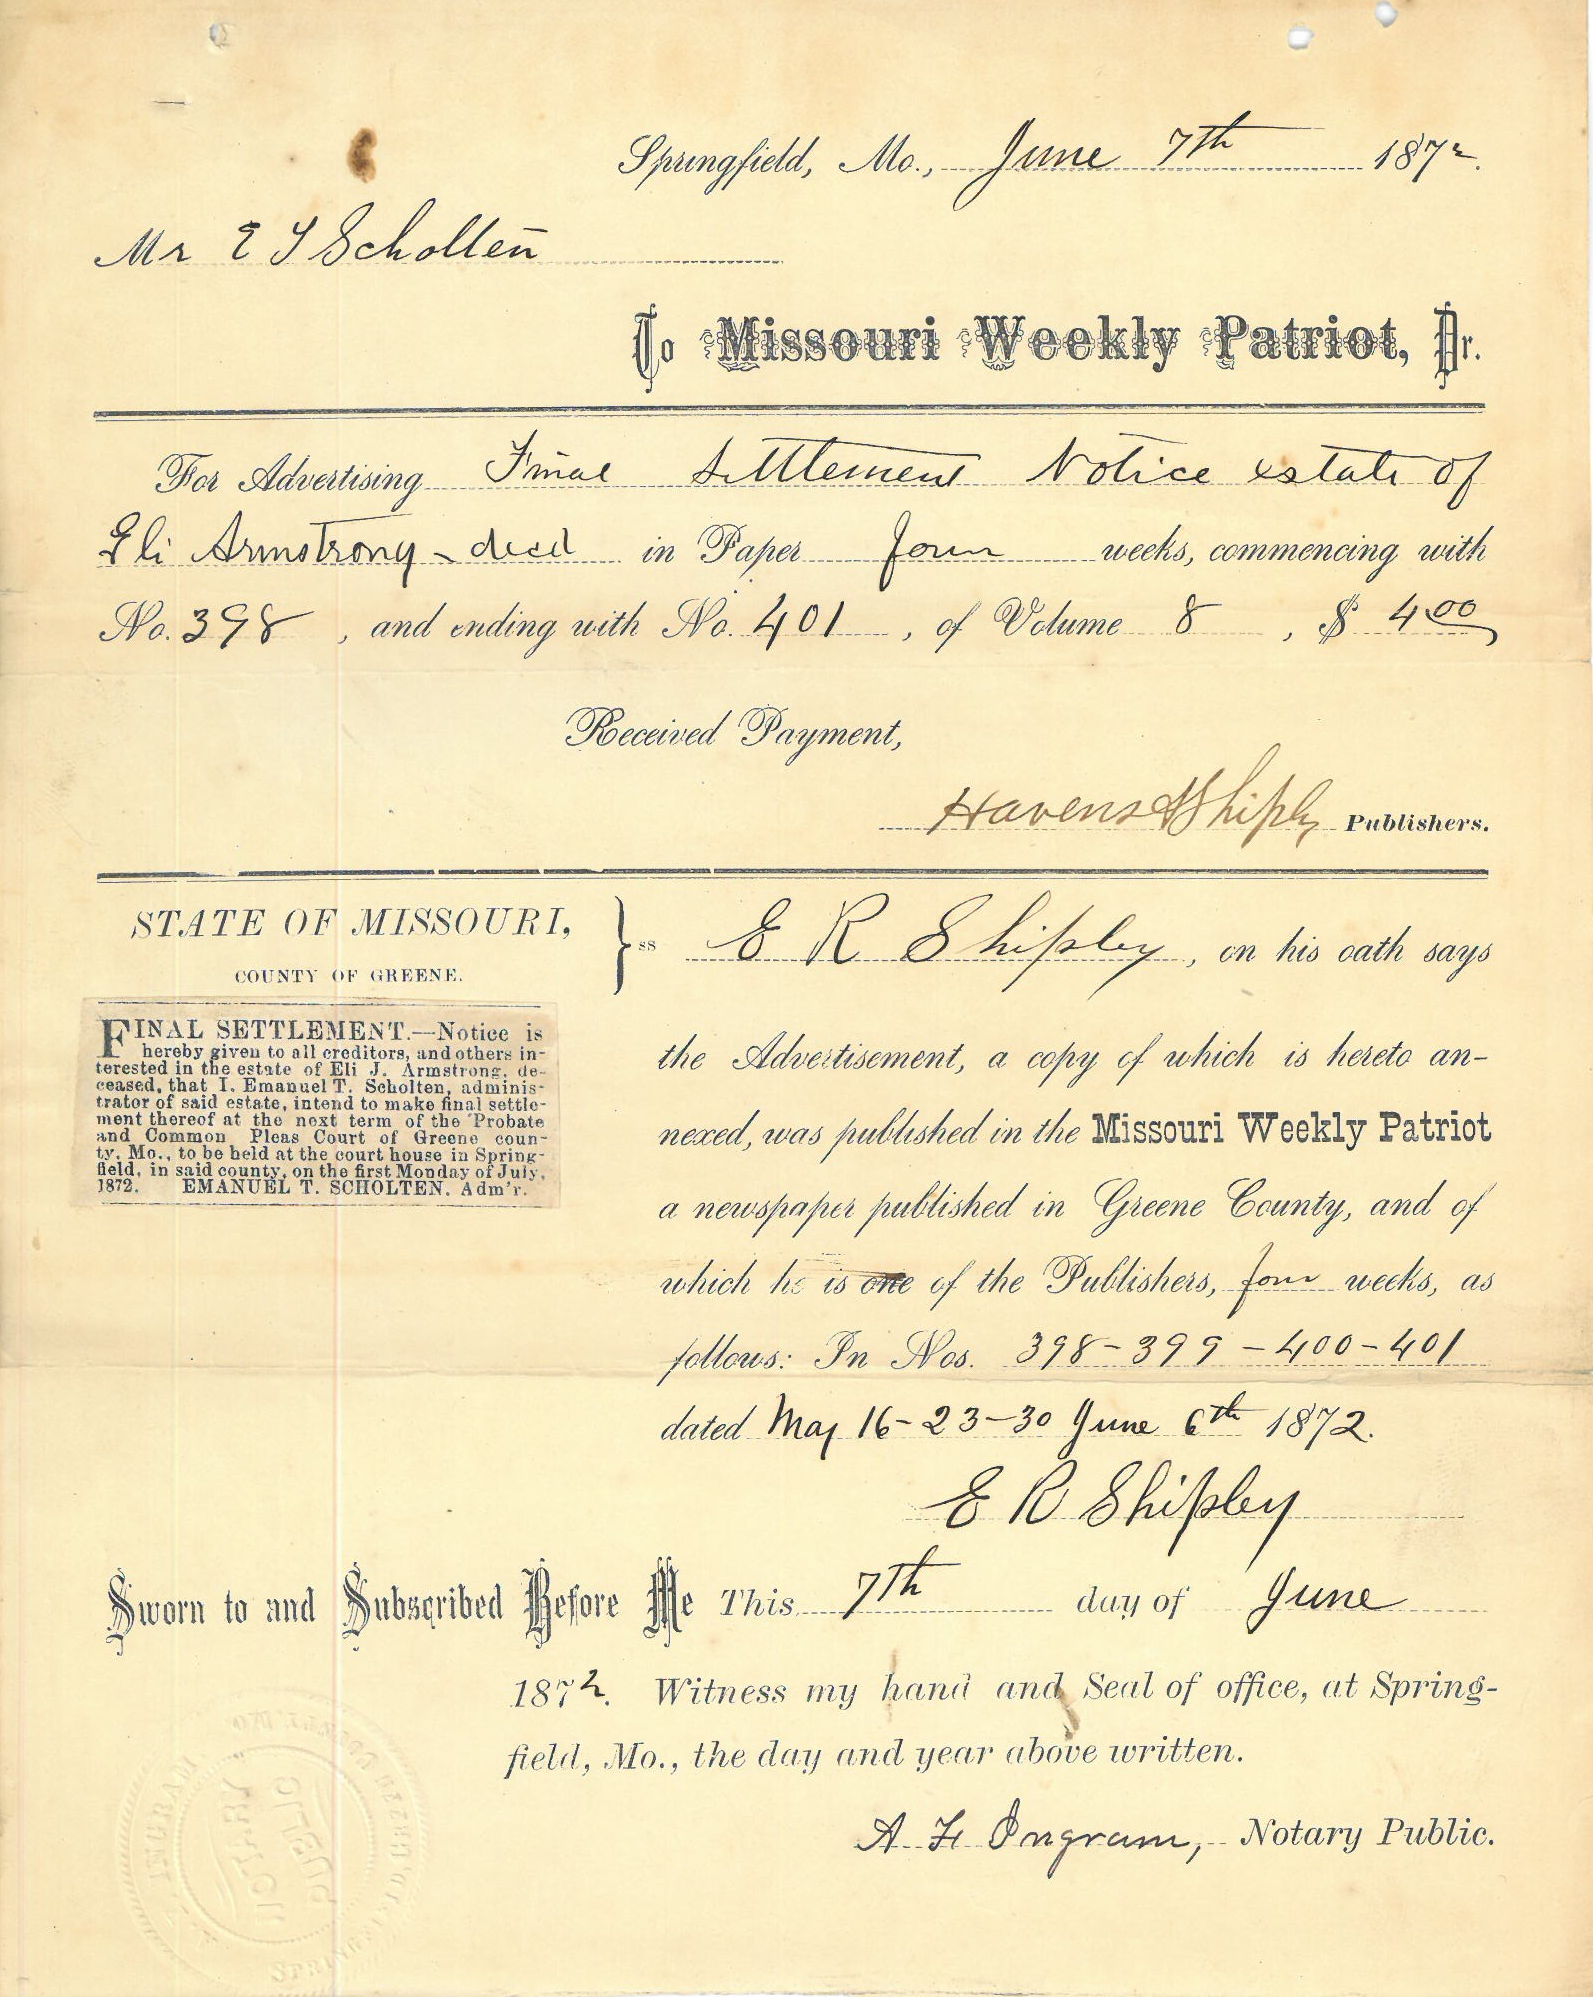 Springfield, Mo., June 7th 1872.
Mr E T Scholten
To Missouri Weekly Patriot, Dr.
For Advertising Final Settlement Notice estate of
Eli Armstrong - decd in Paper four weeks, commencing with
No. 398, and ending with No. 401, of Volume 8, $ 4.00
Received Payment,
Havens & Shiply Publishers.
STATE OF MISSOURI,
COUNTY OF GREENE.
} ss E R Shipley, on his oath says
FINAL SETTLEMENT.—Notice is
hereby given to all creditors, and others in-
terested in the estate of Eli J. Armstrong, de-
ceased, that I, Emanuel T. Scholten, adminis-
trator of said estate, intend to make final settle-
ment thereof at the next term of the Probate
and Common Pleas Court of Greene coun-
ty, Mo., to be held at the court house in Spring-
field, in said county, on the first Monday of July,
1872. EMANUEL T. SCHOLTEN, Adm'r.
the Advertisement, a copy of which is hereto an-
nexed, was published in the Missouri Weekly Patriot
a newspaper published in Greene County, and of
which he is one of the Publishers, four weeks, as
follows: In Nos. 398-399-400-401
dated May 16-23-30 June 6th 1872.
E R Shipley
Sworn to and Subscribed Before Me This 7th day of June
1872. Witness my hand and Seal of office, at Spring-
field, Mo., the day and year above written.
A. F. Ingram, Notary Public.
INGRAM
NOTARY
PUBLIC